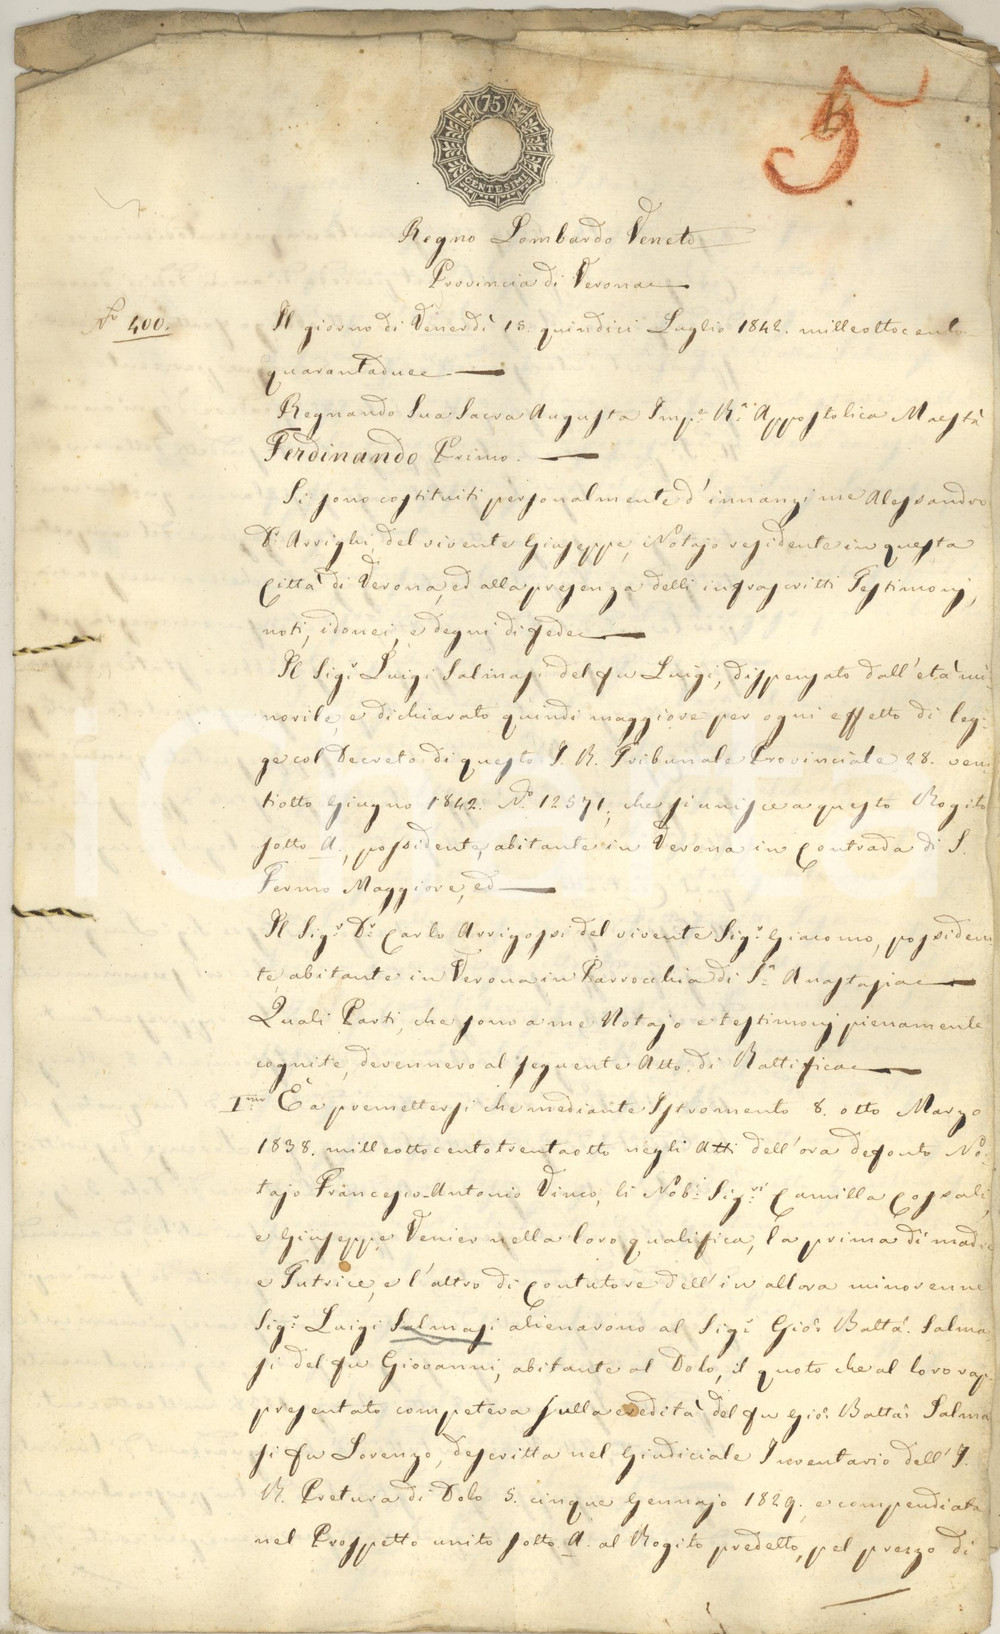 75
CENTESIMI
5
B
Regno Lombardo Veneto
Provincia di Verona
N.º 400.
Il giorno di Venerdì 15. quindici Luglio 1842. milleottocento
quarantadue
Regnando Sua Sacra Augusta Imp.e R.a Appostolica Maestà
Ferdinando Primo.
Si sono costituiti personalmente d'innanzi me Alessandro
D.r Arrighi del vivente Giuseppe, Notajo residente in questa
Città di Verona, ed alla presenza delli infrascritti Testimonj,
noti, idonei, e degni di fede
Il Sig.r Luigi Salmasi del fu Luigi, dispensato dall'età mi-
norile, e dichiarato quindi maggiore per ogni effetto di leg-
ge col Decreto di questo I. R. Tribunale Provinciale 28. ven-
tiotto Giugno 1842. N.º 12571, che si unisce a questo Rogito
sotto A., possidente, abitante in Verona in Contrada di S.
Fermo Maggiore, ed
Il Sig.r D.r Carlo Arrigossi del vivente Sig.r Giacomo, possiden-
te, abitante in Verona in Parrocchia di S.a Anastasia
Quali Parti, che sono a me Notajo e testimonj pienamente
cognite, devennero al seguente Atto di Rattifica
I.mo È a premettersi che mediante Istromento 8. otto Marzo
1838. milleottocentotrentaotto negli Atti dell'ora defonto No-
tajo Francesco-Antonio Vinco, li Nob.i Sig.ri Camilla Cossali,
e Giuseppe Venier nella loro qualifica, la prima di madre
e Tutrice, e l'altro di Contutore dell'in allora minorenne
Sig.r Luigi Salmasi alienarono al Sig.r Gio: Batta. Salma-
si del fu Giovanni, abitante al Dolo, il quoto che al loro rap-
presentato competeva sulla eredità del fu Gio: Batta: Salma-
si fu Lorenzo, descritta nel Giudiciale Inventario dell'I.
R. Pretura di Dolo 5. cinque Gennajo 1829, e compendiata
nel Prospetto unito sotto A. al Rogito predetto, pel prezzo di